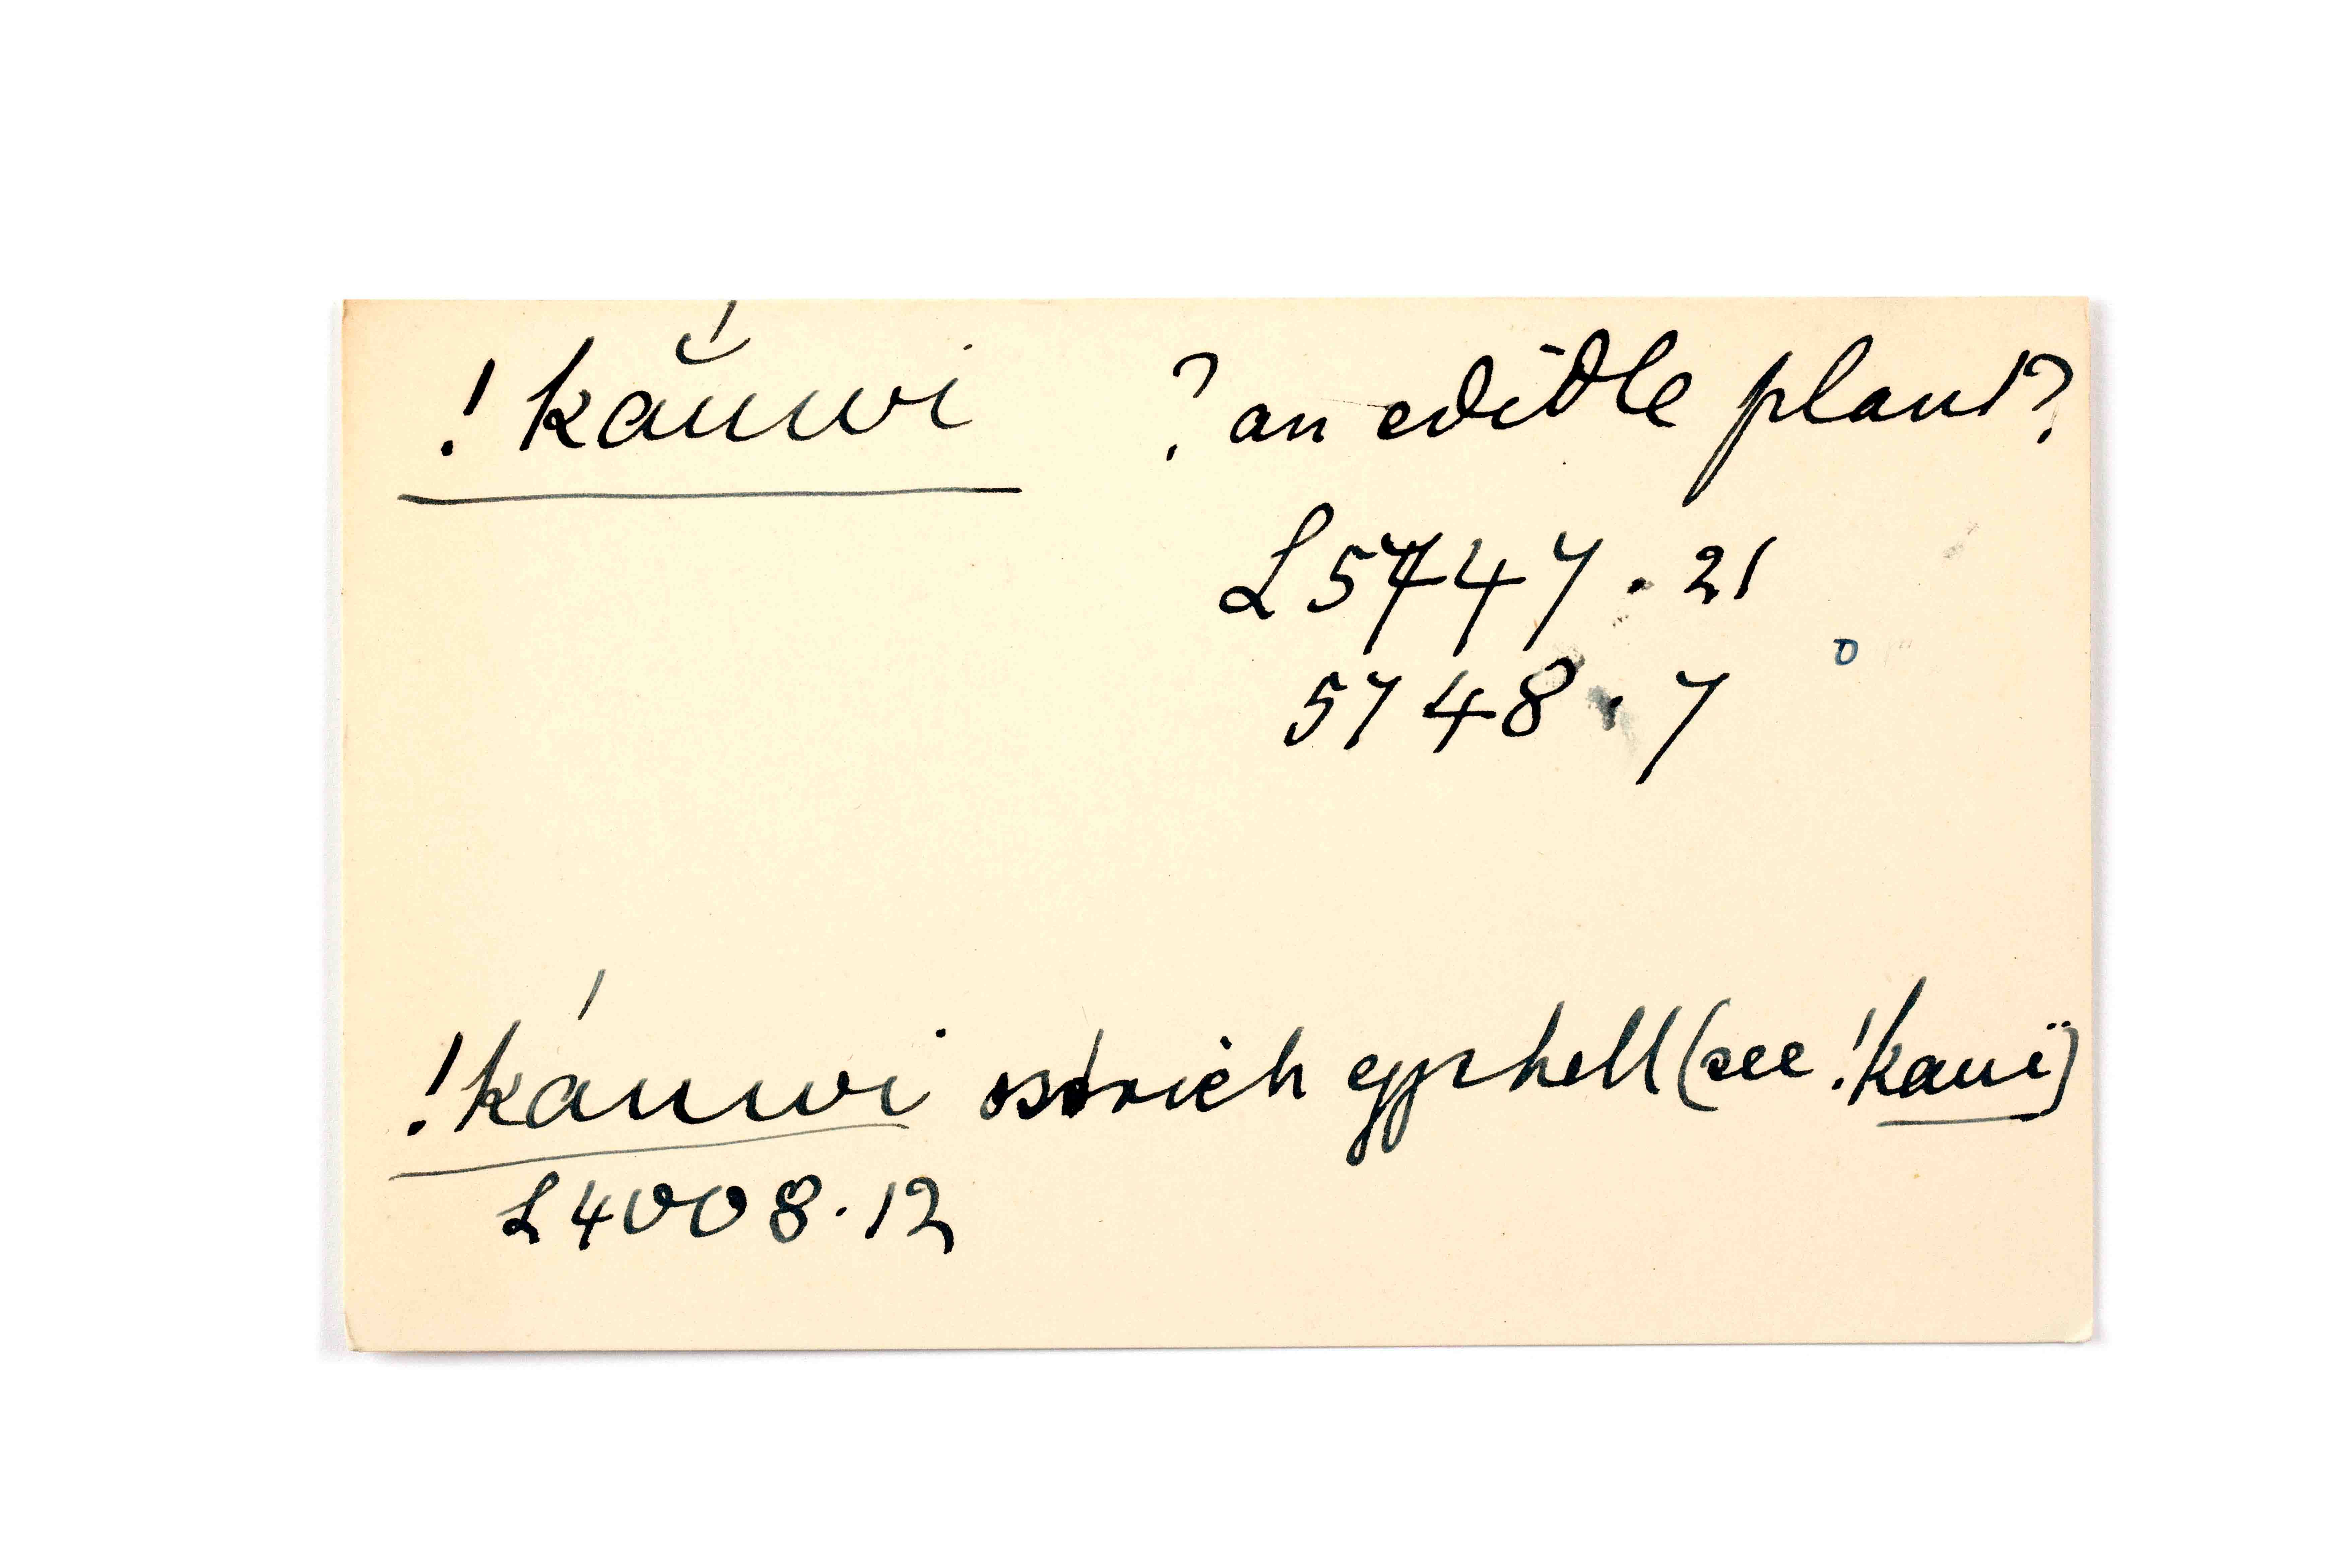 !kắuwi ? an edible plant?
L 5747 . 21
5748 . 7
o
!káuwi ostrich eggshell (see !kauï)
L 4008 . 12